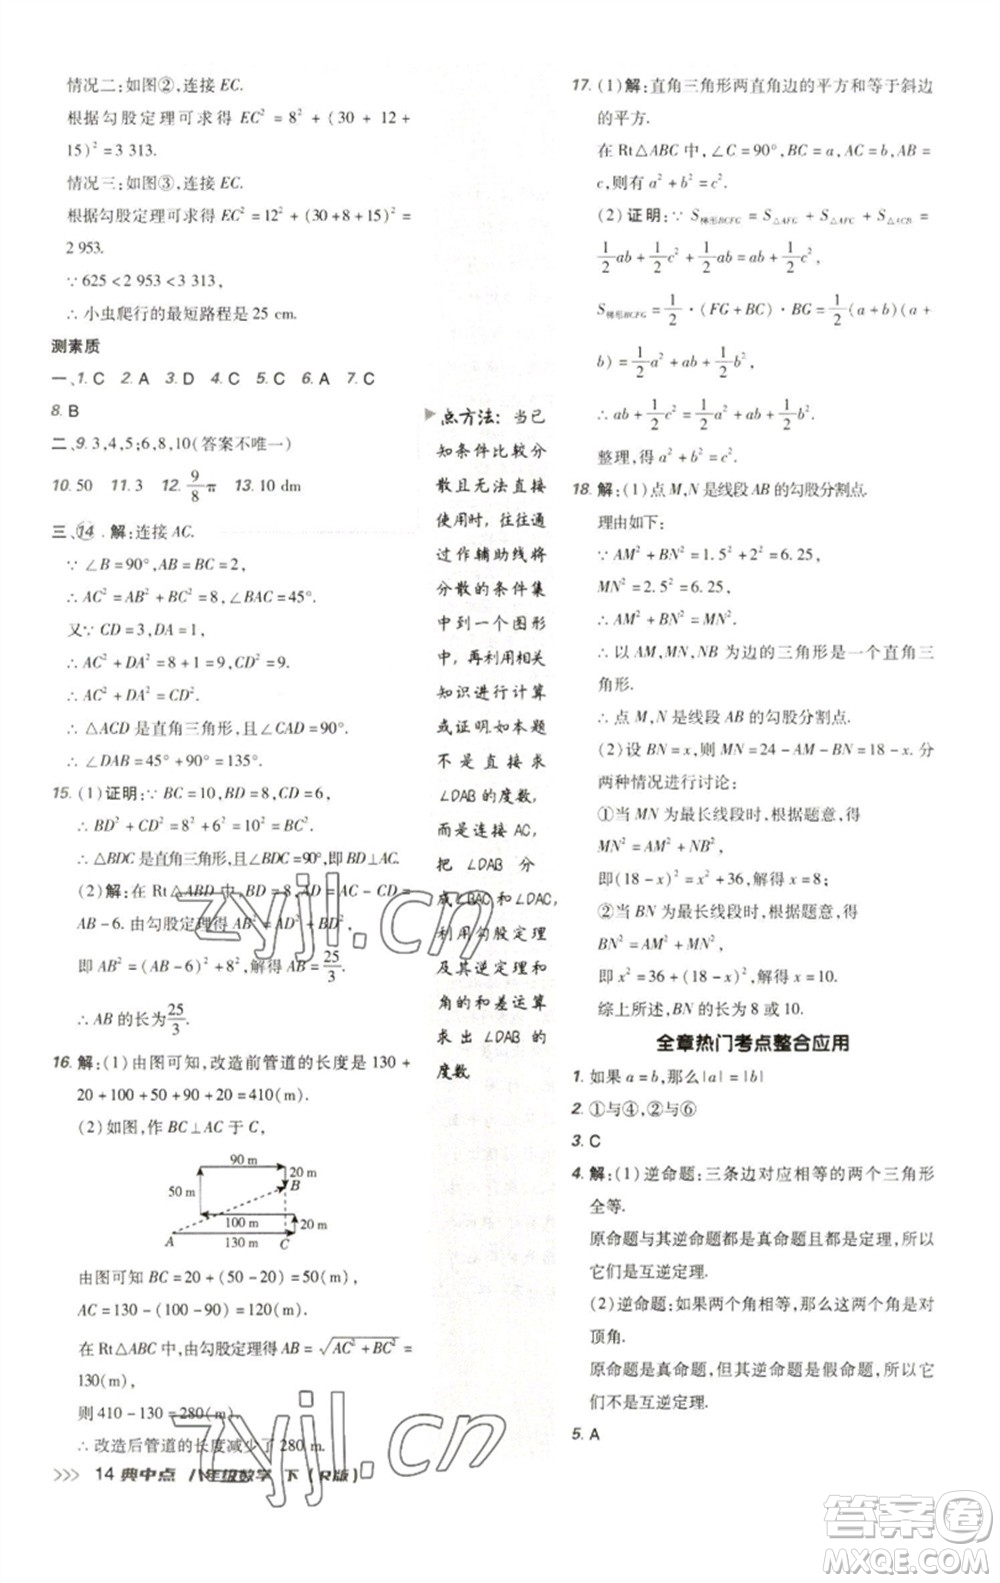 情况二:如图②,连接 EC.
根据勾股定理可求得 EC² = 8² + (30 + 12 +
15)² = 3 313.
情况三:如图③,连接 EC.
根据勾股定理可求得 EC² = 12² + (30+8+15)² =
2 953.
∵ 625 < 2 953 < 3 313,
∴ 小虫爬行的最短路程是 25 cm.
测素质
一、1. C 2. A 3. D 4. C 5. C 6. A 7. C
8. B
二、9. 3,4,5;6,8,10(答案不唯一)
10. 50 11. 3 12. 9/8 π 13. 10 dm
三、14. 解:连接 AC.
∵ ∠B = 90°, AB = BC = 2,
∴ AC² = AB² + BC² = 8, ∠BAC = 45°.
又∵ CD = 3, DA = 1,
∴ AC² + DA² = 8 + 1 = 9, CD² = 9.
∴ AC² + DA² = CD².
∴ △ACD 是直角三角形,且∠CAD = 90°.
∴ ∠DAB = 45° + 90° = 135°.
15. (1)证明:∵ BC = 10, BD = 8, CD = 6,
∴ BD² + CD² = 8² + 6² = 10² = BC².
∴ △BDC 是直角三角形,且∠BDC = 90°,即 BD⊥AC.
(2)解:在 Rt△ABD 中,BD = 8, AD = AC - CD =
AB - 6. 由勾股定理得 AB² = AD² + BD²,
即 AB² = (AB - 6)² + 8², 解得 AB = 25/3.
∴ AB 的长为 25/3.
16. 解:(1)由图可知,改造前管道的长度是 130 +
20 + 100 + 50 + 90 + 20 = 410(m).
(2)如图,作 BC⊥AC 于 C,
90 m
20 m
B
50 m
100 m
20 m
A 130 m C
由图可知 BC = 20 + (50 - 20) = 50(m),
AC = 130 - (100 - 90) = 120(m).
在 Rt△ABC 中,由勾股定理得 AB = √(AC² + BC²) =
130(m),
则 410 - 130 = 280(m).
∴ 改造后管道的长度减少了 280 m.
点方法: 当已
知条件比较分
散且无法直接
使用时, 往往通
过作辅助线将
分散的条件集
中到一个图形
中, 再利用相关
知识进行计算
或证明如本题
不是直接求
∠DAB 的度数,
而是连接 AC,
把 ∠DAB 分
成∠BAC 和∠DAC,
利用勾股定理
及其逆定理和
角的和差运算
求出 ∠DAB 的
度数
17. (1)解:直角三角形两直角边的平方和等于斜边
的平方.
在 Rt△ABC 中, ∠C = 90°, BC = a, AC = b, AB =
c, 则有 a² + b² = c².
(2)证明:∵ S梯形BCFG = S△AFG + S△ABG + S△ACB =
1/2 ab + 1/2 c² + 1/2 ab = ab + 1/2 c²,
S梯形BCFG = 1/2 · (FG + BC) · BG = 1/2 (a + b)(a +
b) = 1/2 a² + ab + 1/2 b²,
∴ ab + 1/2 c² = 1/2 a² + ab + 1/2 b².
整理,得 a² + b² = c².
18. 解:(1)点 M,N 是线段 AB 的勾股分割点.
理由如下:
∵ AM² + BN² = 1. 5² + 2² = 6. 25,
MN² = 2. 5² = 6. 25,
∴ AM² + BN² = MN².
∴ 以 AM,MN,NB 为边的三角形是一个直角三
角形.
∴ 点 M,N 是线段 AB 的勾股分割点.
(2)设 BN = x,则 MN = 24 - AM - BN = 18 - x. 分
两种情况进行讨论:
①当 MN 为最长线段时,根据题意,得
MN² = AM² + NB²,
即(18 - x)² = x² + 36,解得 x = 8;
②当 BN 为最长线段时,根据题意,得
BN² = AM² + MN²,
即 x² = 36 + (18 - x)²,解得 x = 10.
综上所述,BN 的长为 8 或 10.
全章热门考点整合应用
1. 如果 a = b,那么|a| = |b|
2. ①与④,②与⑥
3. C
4. 解:(1)逆命题:三条边对应相等的两个三角形
全等.
原命题与其逆命题都是真命题且都是定理,所
以它们是互逆定理.
(2)逆命题:如果两个角相等,那么这两个角是对
顶角.
原命题是真命题,但其逆命题是假命题,所以它
们不是互逆定理.
5. A
>>> 14 典中点 八年级数学 下(R版)
zyjl.cn
zyjl.cn
答案圈
MXQE.COM